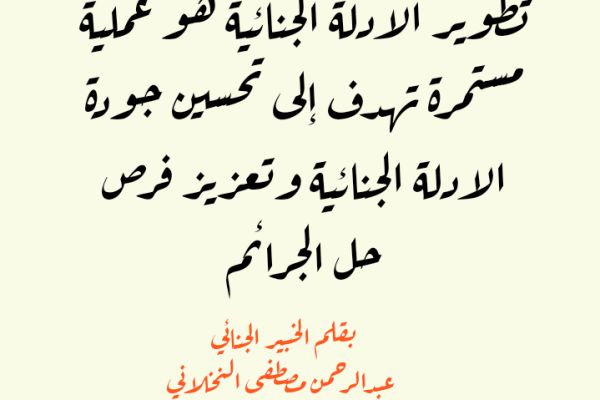 تطوير الادلة الجنائية هو عملية
مستمرة تهدف إلى تحسين جودة
الادلة الجنائية وتعزيز فرص
حل الجرائم
بقلم الخبير الجنائي
عبدالرحمن مصطفى النخلاني